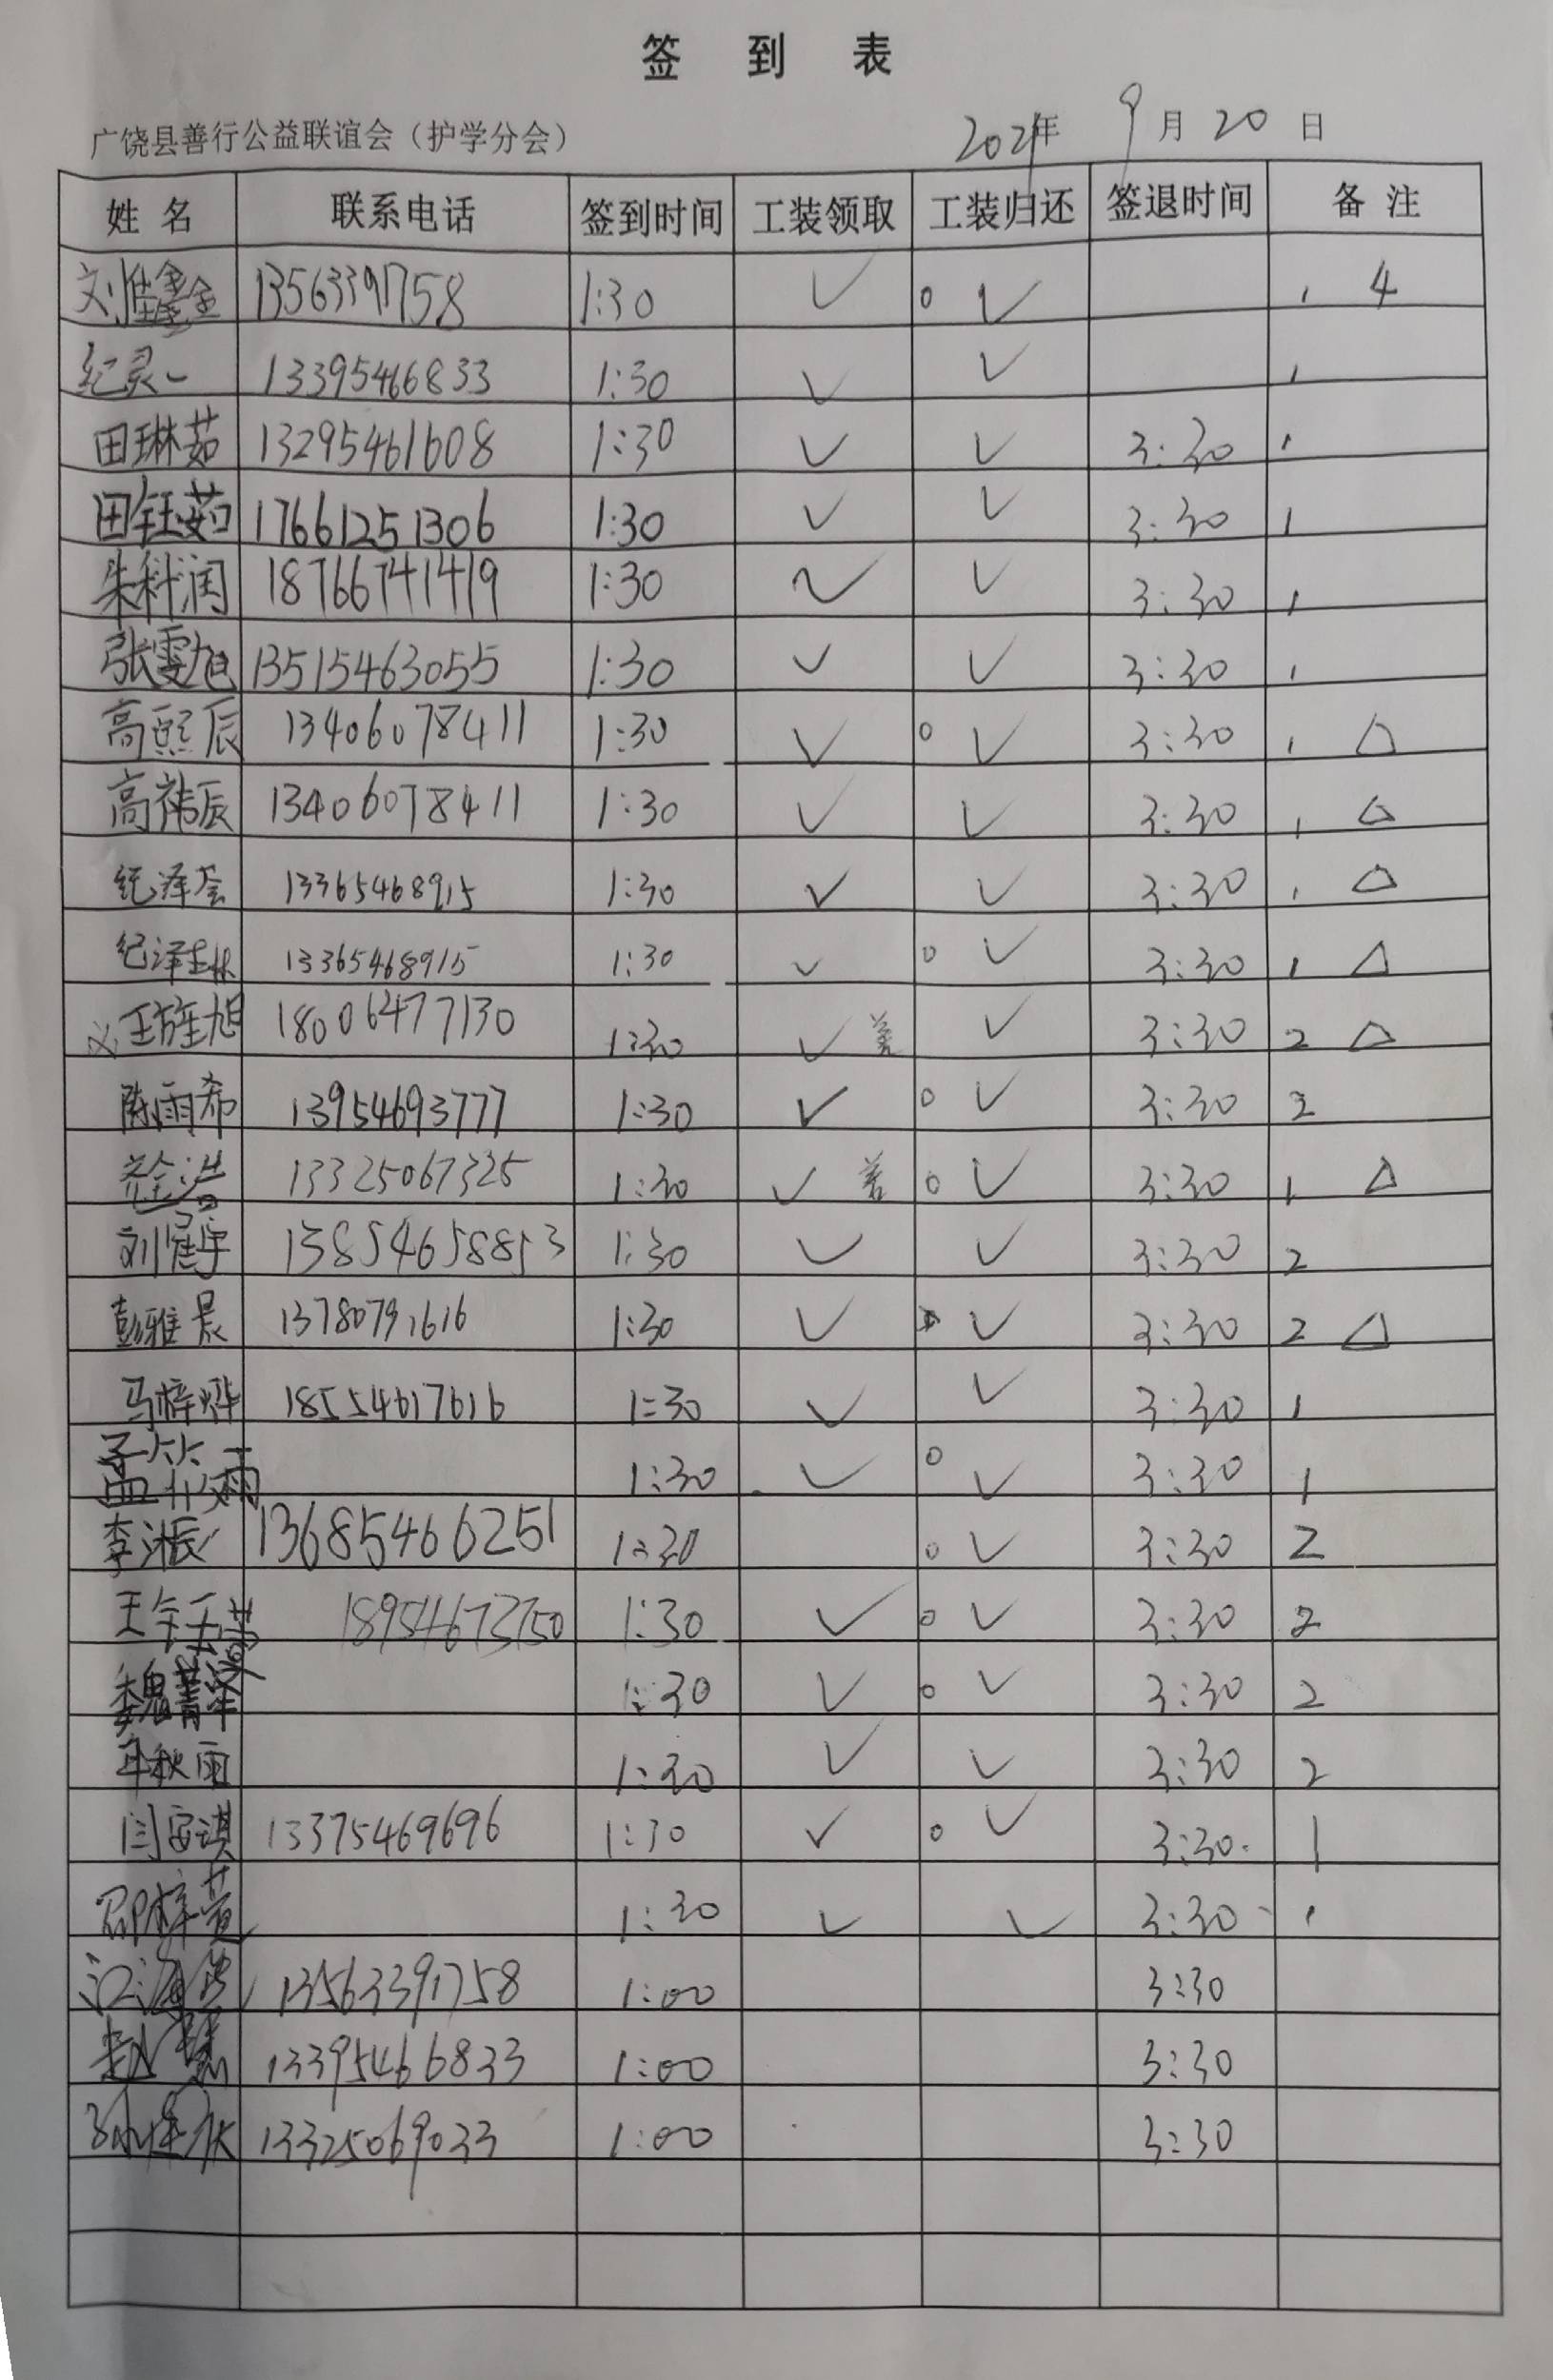 签 到 表
广饶县善行公益联谊会（护学分会） 2021年 9月 20 日
姓 名 联系电话 签到时间 工装领取 工装归还 签退时间 备 注
13563391758 1:30 ✓ ○ ✓ , 4
纪灵一 13395466833 1:30 ✓ ✓ ,
田琳茹 13295461608 1:30 ✓ ✓ 3:30 ,
田钰茹 17661251306 1:30 ✓ ✓ 3:30 1
朱科润 18766741419 1:30 ✓ ✓ 3:30 1
张雯旭 13515463055 1:30 ✓ ✓ 3:30 ,
高熙辰 13406078411 1:30 ✓ ○ ✓ 3:30 , △
高祎辰 13406078411 1:30 ✓ ✓ 3:30 , △
纪泽荟 13365468915 1:30 ✓ ✓ 3:30 , △
纪泽 13365468915 1:30 ✓ ○ ✓ 3:30 1 △
王旭 18006477130 1:30 ✓ ✓ 3:30 2 △
陈雨希 13954693777 1:30 ✓ ○ ✓ 3:30 2
13325067325 1:30 ✓ ○ ✓ 3:30 1 △
刘宇 13854658853 1:30 ✓ ✓ 3:30 2
彭雅晨 13780791616 1:30 ✓ ✓ 3:30 2 △
马梓烨 18554617616 1:30 ✓ ✓ 3:30 1
孟雨 1:30 ✓ ○ ✓ 3:30 1
李振 13685466251 1:30 ○ ✓ 3:30 2
王 18954673750 1:30 ✓ ○ ✓ 3:30 2
魏菁 1:30 ✓ ○ ✓ 3:30 2
秋雨 1:30 ✓ ✓ 3:30 2
闫安琪 13375469696 1:30 ✓ ○ ✓ 3:30 1
邵梓萱 1:30 ✓ ✓ 3:30 ,
江海 13563391758 1:00 3:30
赵慧 13395466833 1:00 3:30
13325069033 1:00 3:30